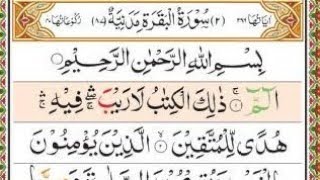 اٰیَاتُهَا ٢٨٦ (٢) سُوْرَةُ الْبَقَرَةِ مَدَنِیَّةٌ (٨٧) رُكُوْعَاتُهَا ٤٠
بِسْمِ اللّٰهِ الرَّحْمٰنِ الرَّحِیْمِ
الٓمّٓ ۚ ذٰلِكَ الْكِتٰبُ لَا رَیْبَ ۛۚ فِیْهِ ۛۚ
هُدًی لِّلْمُتَّقِیْنَ ۙ الَّذِیْنَ یُؤْمِنُوْنَ